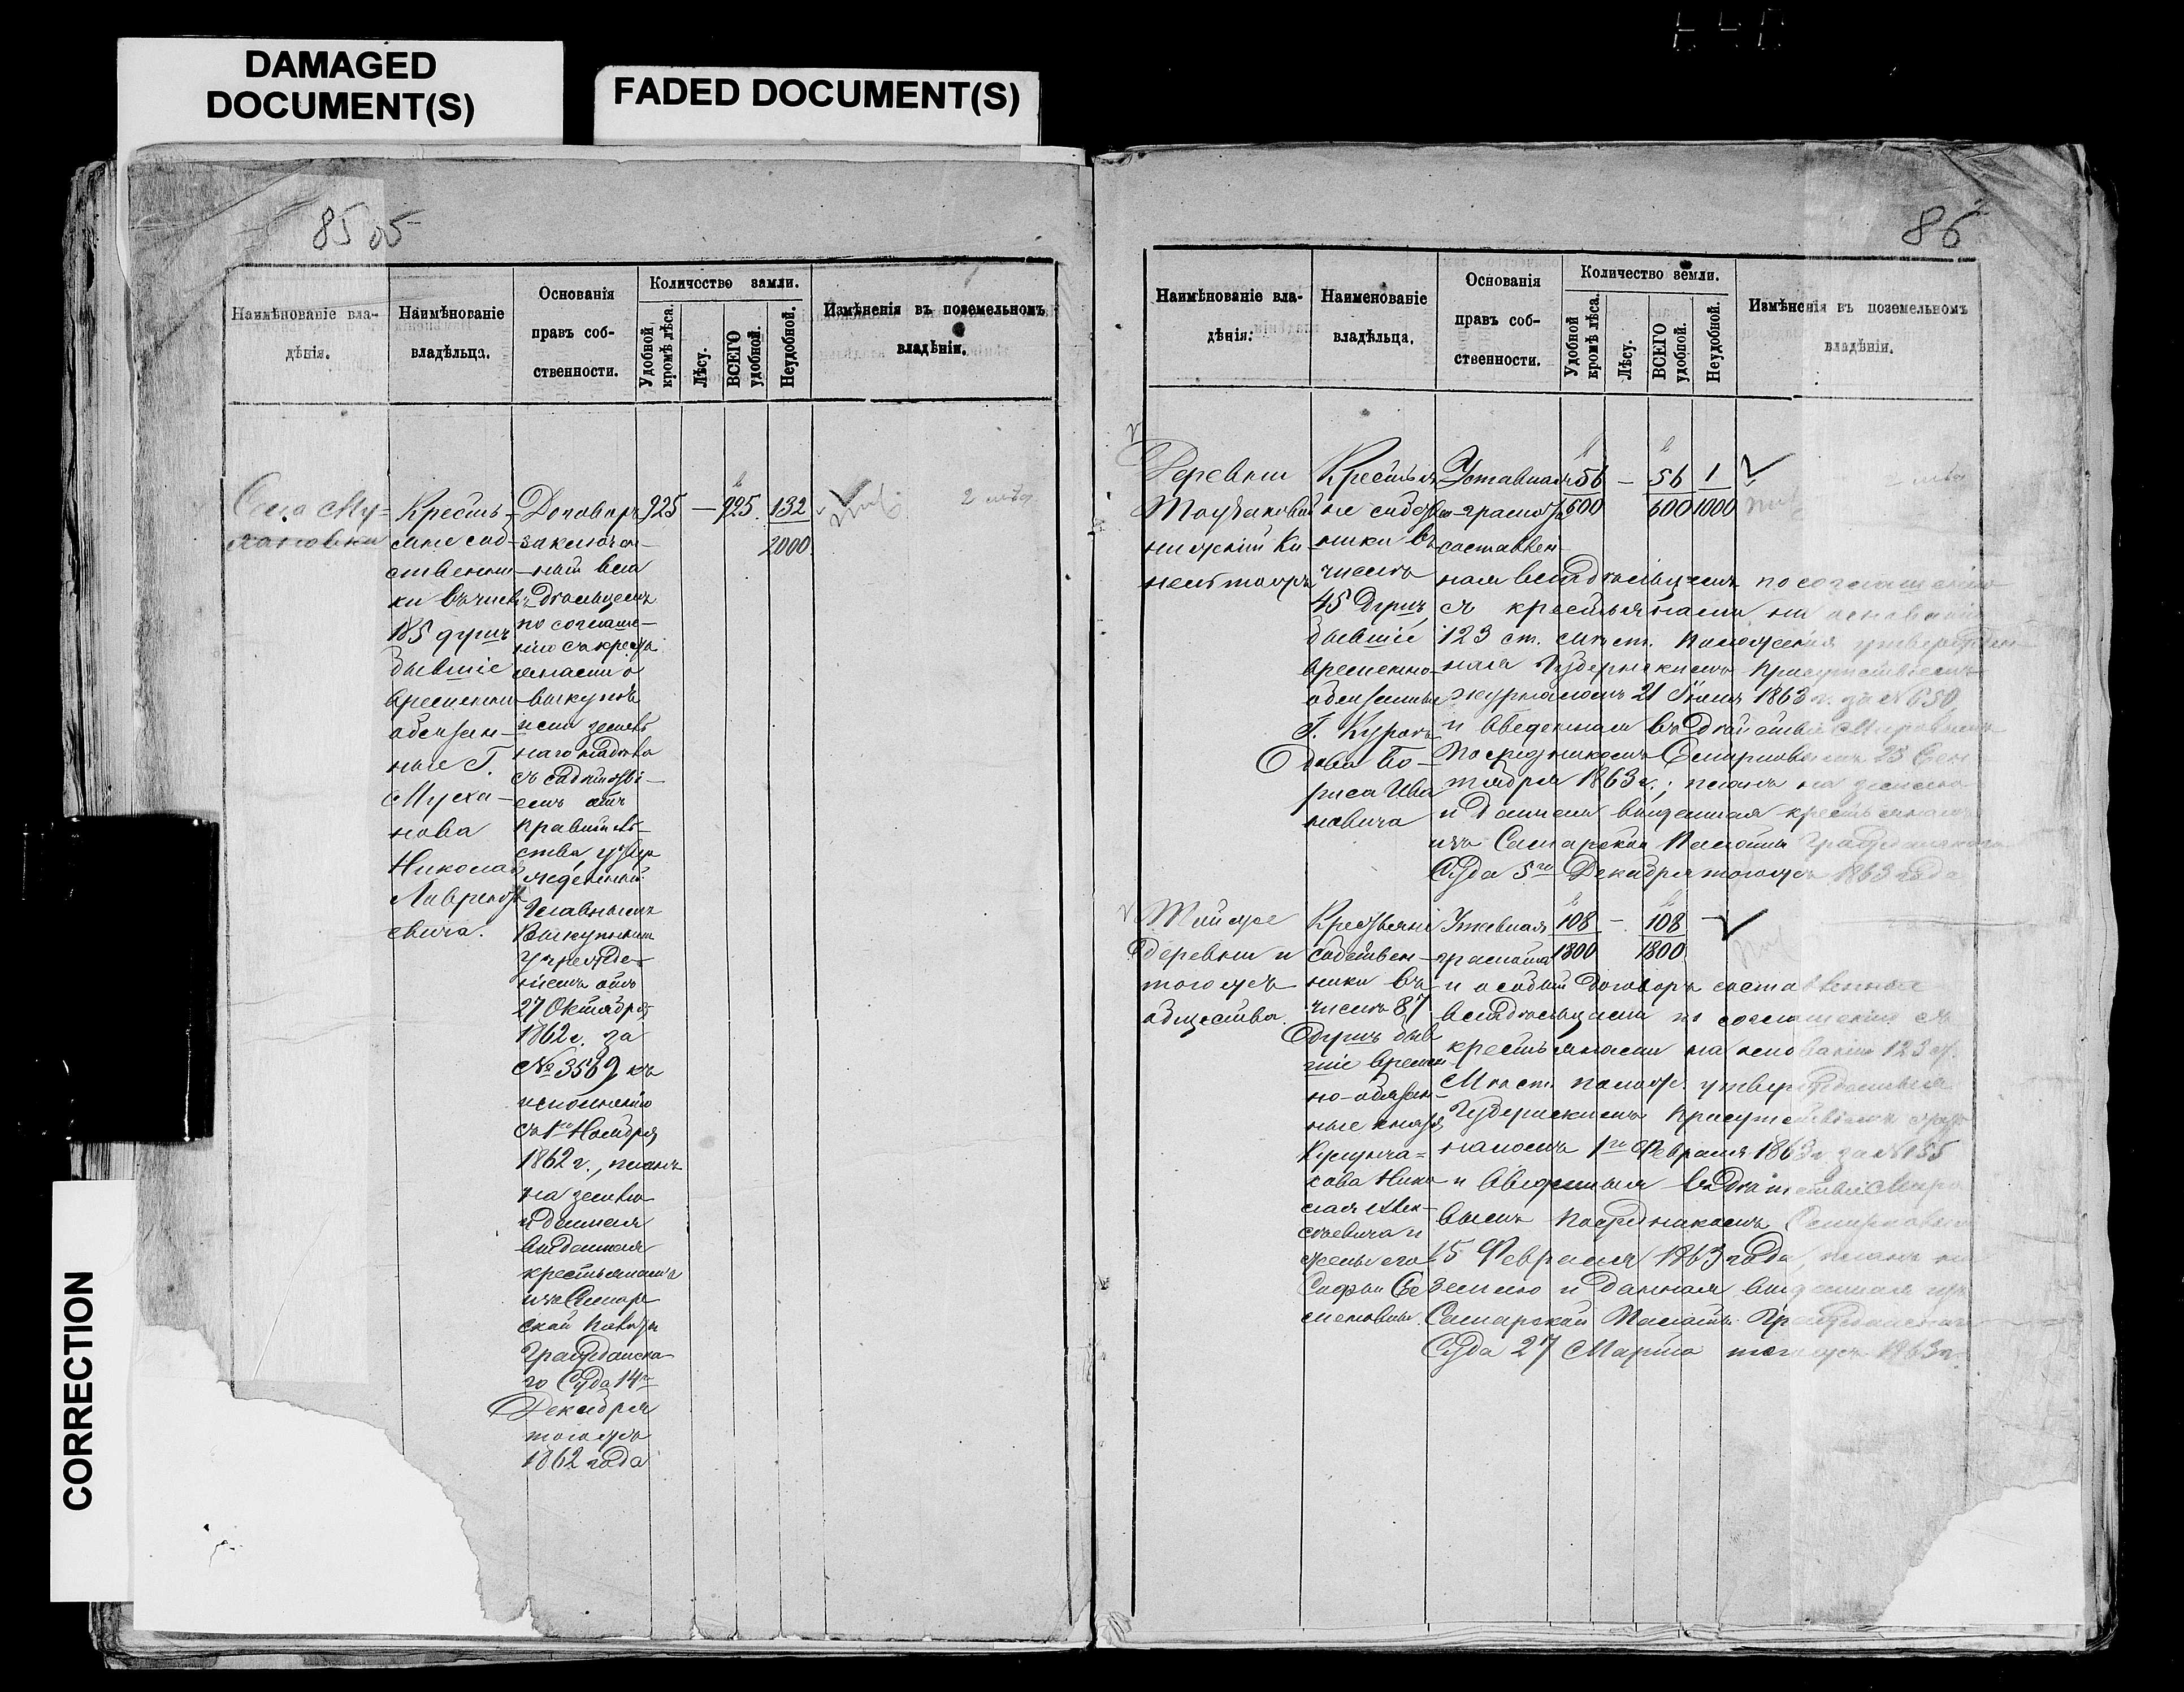 DAMAGED
DOCUMENT(S)
FADED DOCUMENT(S)
CORRECTION
85
Наимѣнованіе вла-
дѣнія.
Наимѣнованіе
владѣльца.
Основанія
правъ соб-
ственности.
Количество земли.
Удобной
кромѣ лѣса.
Лѣсу.
ВСЕГО
удобной.
Неудобной.
Измѣненія въ поземельномъ
владѣніи.
Села Му-
хановки
Кресть-
яне соб-
ственни-
ки въ числѣ
185 душъ
бывшіе
временно
обязан-
ные Г.
Муха-
нова
Николая
Лаврентье
вича.
Договоръ
заключен-
ный вла
дѣльцемъ
по соглаше-
нію съ кресть
янами о
выкупѣ
ими земель
наго надѣла
съ содѣйстві-
емъ отъ
правитель-
ства утвер
жденный
Главнымъ
Выкупнымъ
Учрежде-
ніемъ отъ
27 Октября
1862 г. за
№ 3569 къ
исполненію
съ 1го Ноября
1862 г., планъ
на землю
и данная
выданная
крестьянамъ
изъ Самар
ской Палаты
Гражданска-
го Суда 14го
Декабря
того жъ
1862 года
925 — 925 132
2000
86
Наимѣнованіе вла-
дѣнія.
Наименованіе
владѣльца.
Основанія
правъ соб-
ственности.
Количество земли.
Удобной
кромѣ лѣса.
Лѣсу.
ВСЕГО
удобной.
Неудобной.
Измѣненія въ поземельномъ
владѣніи.
Деревни
Кресть
не собствен
ники въ
числѣ
45 душъ
бывшіе
временно-
обязанные
Г. Куро
ѣдова Бо-
риса Ива
новича
Уставная
грамота
составлен-
ная владѣльцемъ по соглашенію
съ крестьянами на основаніи
123 ст. мѣст. Положенія утвержден-
ная Губернскимъ Присутствіемъ
журналомъ 21 Іюня 1863 г. за № 650,
и введенная въ дѣйствіе Мировымъ
Посредникомъ 25 Сен
тября 1863 г.; планъ на землю
и данная выданная крестьянамъ
изъ Самарской Палаты Гражданскаго
Суда 5го Декабря того жъ 1863 года
56 — 56 1
600 600 1000
Той же
деревни и
того жъ
общества.
Крестьяне
собствен-
ники въ
числѣ 87
душъ быв
шіе времен
но-обязан-
ные князя
Кугуша-
хова Нико
лая Алек-
сѣевича и
жены его
Софьи Се
меновны.
Уставная
грамота
и особый договоръ составленные
владѣльцами по соглашенію съ
крестьянами на основаніи 123 ст.
Мѣст. полож. утвержденныя
Губернскимъ Присутствіемъ жур
наломъ 1го Февраля 1863 г. за № 155
и введенныя въ дѣйствіе Миро
вымъ Посредникомъ
15 Февраля 1863 года, планъ на
землю и данная выданная изъ
Самарской Палаты Гражданскаго
Суда 27 Марта того жъ 1863 г.
108 — 108
1800 1800